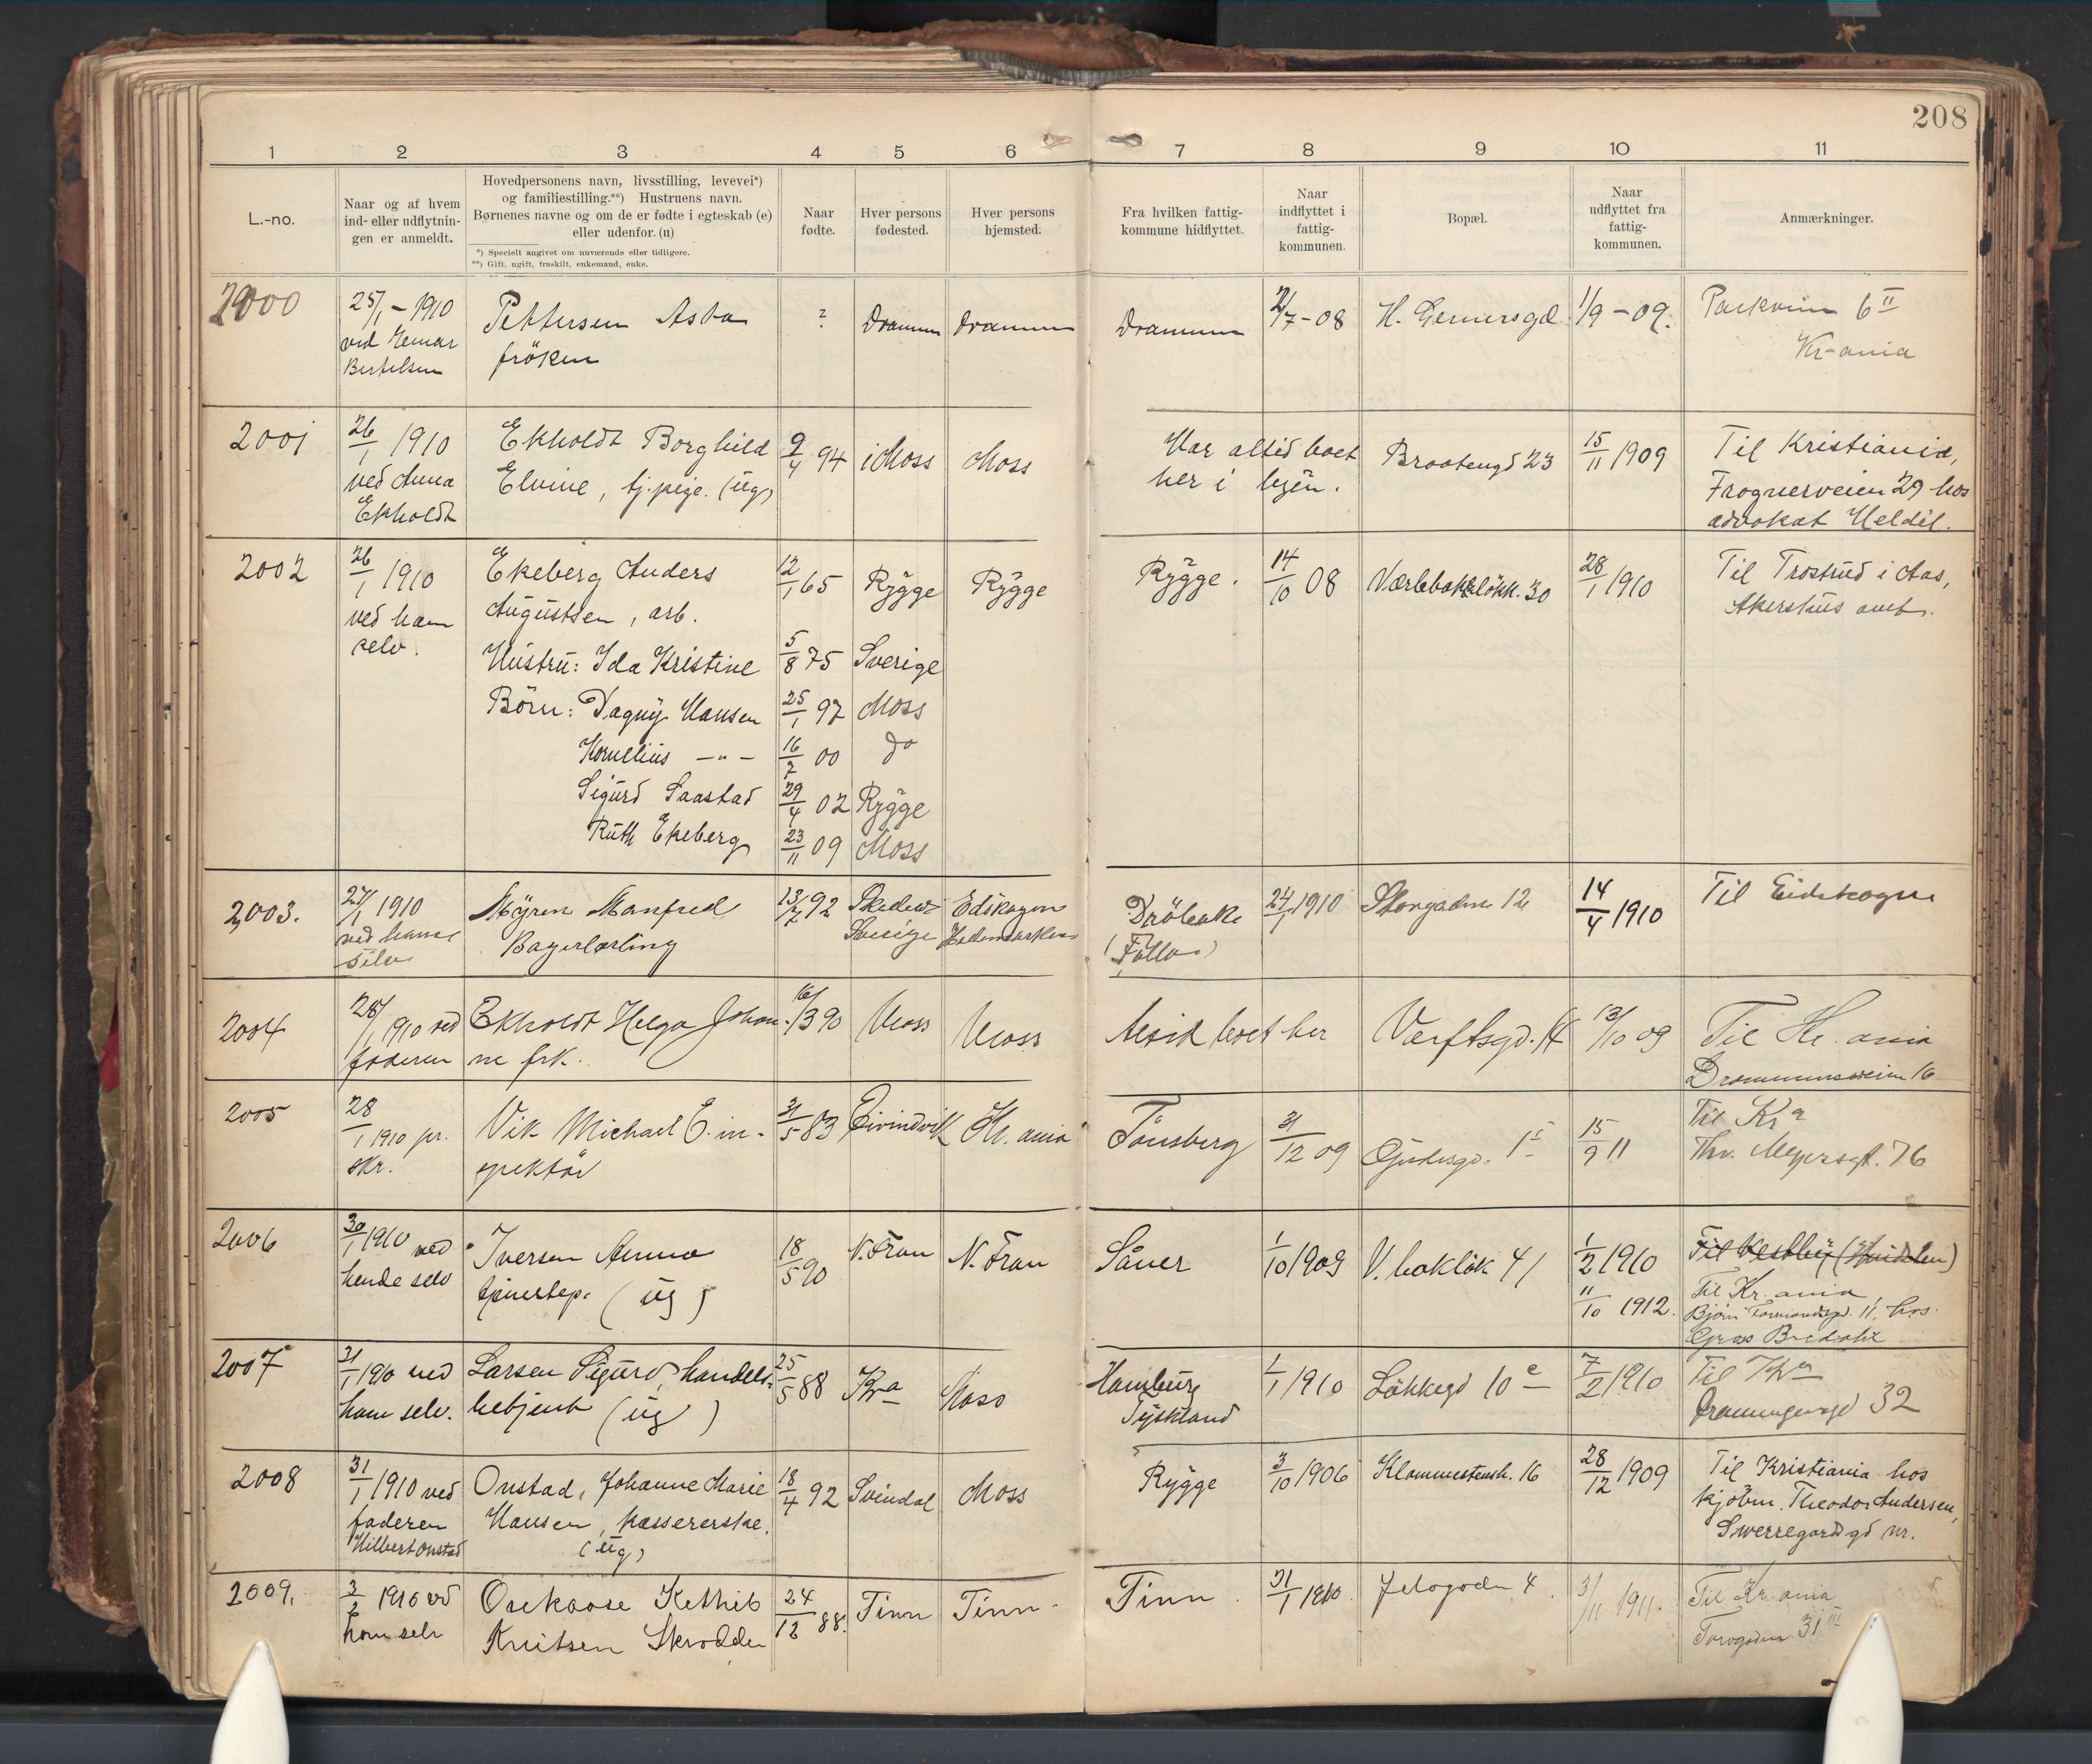 208
1 2 3 4 5 6 7 8 9 10 11
L.-no.
Naar og af hvem
ind- eller udflytnin-
gen er anmeldt.
Hovedpersonens navn, livsstilling, levevei*)
og familiestilling.**) Hustruens navn.
Børnenes navne og om de er fødte i egteskab (e)
eller udenfor. (u)
*) Specielt angivet om nuværende eller tidligere.
**) Gift, ugift, fraskilt, enkemand, enke.
Naar
fødte.
Hver persons
fødested.
Hver persons
hjemsted.
Fra hvilken fattig-
kommune hidflyttet.
Naar
indflyttet i
fattig-
kommunen.
Bopæl.
Naar
udflyttet fra
fattig-
kommunen.
Anmærkninger.
2000
25/1 - 1910
ved
Bertelsen
Pettersen Asta
frøken
?
Drammen
Drammen
Drammen
2/7 - 08
H. Gernersgd
1/9 - 09.
Parkvein 6 II
Kr-ania
2001
26/1 1910
ved Anna
Ekholdt
Ekholdt Borghild
Elvine, tj.pige. (ug)
9/4 94
i Moss
Moss
Har altid boet
her i byen.
Braatengd 23
15/11 1909
Til Kristiania,
Frognerveien 29 hos
advokat
2002
26/1 1910
ved ham
selv.
Ekeberg Anders
Augustsen, arb.
Hustru: Ida Kristine
Børn: Dagny Hansen
Kornelius — " —
Sigurd Saastad
Ruth Ekeberg
12/1 65
5/8 75
25/1 97
16/7 00
29/4 02
23/11 09
Rygge
Sverige
Moss
do
Rygge
Moss
Rygge
Rygge.
14/10 08
Værlebakkeløkk. 30
28/1 1910
Til Trostrud i Aas,
Akershus amt.
2003.
27/1 1910
ved ham
selv
Myren Manfred
Bagerlærling
13/7 92
Sverige
Edskogen
Hedemarken
Drøbak
(Follo)
24/1 1910
Storgaden 12
14/4 1910
Til Eidskogen
2004
28/1 1910 ved
faderen
Ekholdt Helga Johan-
ne frk.
16/3 90
Moss
Moss
Altid boet her
Værftsgd. 14
13/10 09
Til Kr. ania
Drammensveien 16
2005
28/1 1910 pr.
skr.
Vik Michael E. in-
spektør
31/5 83
Eivindvik
Kr. ania
Tønsberg
31/12 09
15/9 11
Til Kr a
Thv. Meyersgt. 76
2006
30/1 1910 ved
hende selv
Iversen Anna
tjenestep. (ug)
18/5 90
N. Fron
N. Fron
Såner
1/10 1909
V. bakløk 41
1/2 1910
11/10 1912.
Til Vestby
Til Kr. ania
11, hos
2007
31/1 1910 ved
ham selv.
Larsen Sigurd, handels-
betjent (ug)
25/5 88
Kr a
Moss
Hamburg
Tyskland
1/1 1910
Løkkegd 10 e
7/2 1910
Til Kr a
32
2008
31/1 1910 ved
faderen
Hilbert Onstad
Onstad, Johanne Marie
Hansen, kassererske.
(ug)
18/4 92
Svindal
Moss
Rygge
3/10 1906
Klommestensk. 16
28/12 1909
Til Kristiania hos
kjøbm. Theodor Andersen,
Swerregardsgd nr.
2009.
3/2 1910 ved
ham selv
Knutsen Skrædder
24/12 88.
Tinn
Tinn
Tinn.
31/1 1910.
Jeløgaden 4.
3/11 1911.
Til Kr. ania
31 III